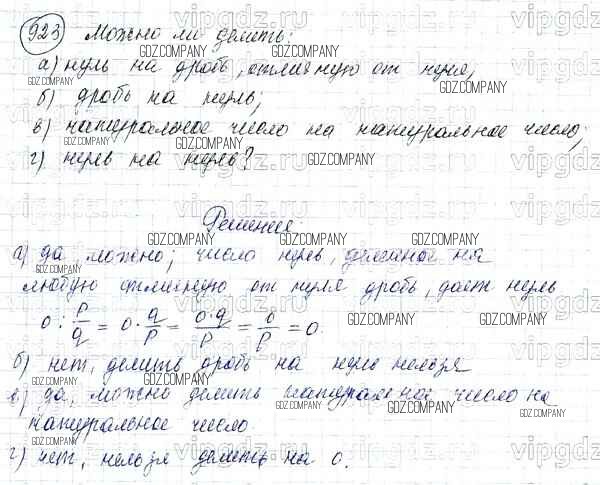 923 Можно ли делить:
а) нуль на дробь, отличную от нуля,
б) дробь на нуль;
в) натуральное число на натуральное число;
г) нуль на нуль?
Решение:
а) да, можно; число нуль, деленное на
любую отличную от нуля дробь, дает нуль
0 : p/q = 0 · q/p = 0·q/p = 0/p = 0.
б) нет, делить дробь на нуль нельзя
в) да, можно делить натуральное число на
натуральное число.
г) нет, нельзя делить на 0.